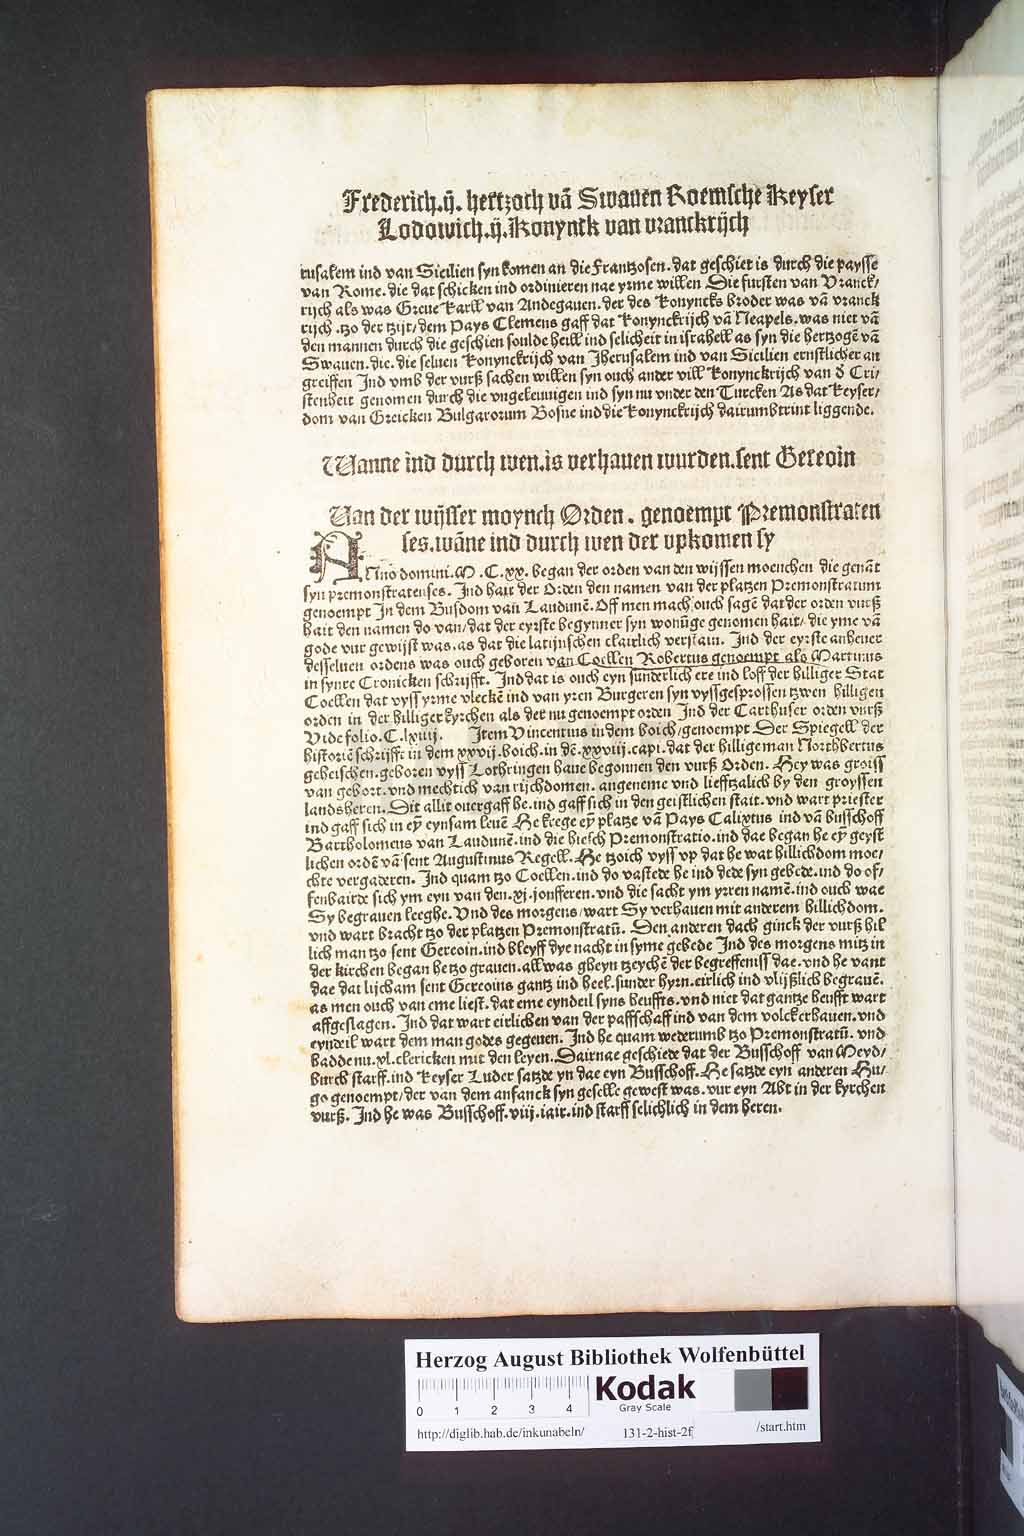 Frederich.ij. hertzoch vā Swauen Roemsche Keyser
Lodowich.ij. Konynck van vranckrijch
rusalem ind van Sicilien syn komen an die Frantzosen. dat geschiet is durch die paysse
van Rome. die dat schicken ind ordinieren nae yrme willen Die fursten van Vranck/
rijch als was Greue Karll van Andegauen. der des konyncks broder was vā vranck
rijch .tzo der tzijt/ dem Pays Clemens gaff dat konynckrijch vā Neapels. was niet vā
den mannen durch die geschien soulde heill ind selicheit in israhell as syn die hertzogē vā
Swauen. die. die seluen konynckrijch van Jherusalem ind van Sicilien ernstlicher an
greiffen Ind vmb der vurß sachen willen syn ouch ander vill konynckrijch van d' Cri/
stenheit genomen durch die vngeleuuigen ind syn nu vnder den Turcken As dat keyser/
dom van Greicken Bulgarorum Bosne ind die konynckrijch dairumbtrint liggende.
Wanne ind durch wen. is verhauen wurden. sent Gereoin
Uan der wijsser moynch Orden . genoempt Premonstraten
ses. wāne ind durch wen der vpkomen sy
ANno domini. M .C.xx. began der orden van den wijssen moenchen die genāt
syn premonstratenses. Ind hait der Orden den namen van der platzen Premonstratum
genoempt In dem Busdom van Laudunē. Off men mach ouch sagē dat der orden vurß
hait den namen do van/ dat der eyrste begynner syn wonūge genomen hait/ die yme vā
gode vur gewijst was. as dat die latijnschen clairlich verstain. Ind der eyrste anheuer
desseluen ordens was ouch geboren van Coellen Robertus genoempt als Martinus
in synre Cronicken schrijfft. Ind dat is ouch eyn sunderlich ere ind loff der hilliger Stat
Coellen dat vyss yrme vleckē ind van yren Burgeren syn vyssgesprossen tzwen hilligen
orden in der hilliger kyrchen als der nu genoempt orden Ind der Carthuser orden vurß
Vide folio. C. lxiiij. Item Vincentius in dem boich/ genoempt Der Spiegell der
historiē schrijfft in dem xxvij. boich. in dē. xxviij. capi. dat der hillige man Northbertus
geheischen. geboren vyss Lothringen haue begonnen den vurß Orden. Hey was groiss
van gebort. vnd mechtich van rijchdomen. angeneme vnd liefftzalich by den groyssen
landsheren. Dit allit ouergaff he. ind gaff sich in den geistlichen stait. vnd wart priester
ind gaff sich in eȳ eynsam leuē He krege eȳ platze vā Pays Calixtus ind vā busschoff
Bartholomeus van Laudunē. ind die hiesch Premonstratio. ind dae began he eȳ geyst
lichen ordē vā sent Augustinus Regell. He tzoich vyss vp dat he wat hillichdom moe/
chte vergaderen. Ind quam tzo Coellen. ind do vastede he ind dede syn gebede. ind do of/
fenbairde sich ym eyn van den. xj. jonfferen. vnd die sacht ym yrren namē. ind ouch wae
Sy begrauen leeghe. Vnd des morgens/ wart Sy verhauen mit anderem hillichdom.
vnd wart bracht tzo der platzen Premonstratū. Den anderen dach ginck der vurß hil
lich man tzo sent Gereoin. ind bleyff dye nacht in syme gebede Ind des morgens mitz in
der kirchen began he tzo grauen. all was gheyn tzeychē der begreffeniss dae. vnd he vant
dae dat lijcham sent Gereoins gantz ind heel. sunder hyrn. eirlich ind vlijßlich begrauē.
as men ouch van eme liest. dat eme eyndeil syns heuffts. vnd niet dat gantze heufft wart
affgeslagen. Ind dat wart eirlichen van der paffschaff ind van dem volck erhauen. vnd
eyndeil wart dem man godes gegeuen. Ind he quam wederumb tzo Premonstratū. vnd
hadde nu. xl. clericken mit den leyen. Dairnae geschiede dat der Busschoff van Meyd/
burch starff. ind keyser Luder satzde yn dae eyn Busschoff. He satzde eyn anderen Hu/
go genoempt/ der van dem anfanck syn geselle gewest was. vur eyn Abt in der kyrchen
vurß. Ind he was Busschoff. viij. iair. ind starff selichlich in dem heren.
Herzog August Bibliothek Wolfenbüttel
0 1 2 3 4
Kodak
Gray Scale
http://diglib.hab.de/inkunabeln/ 131-2-hist-2f /start.htm